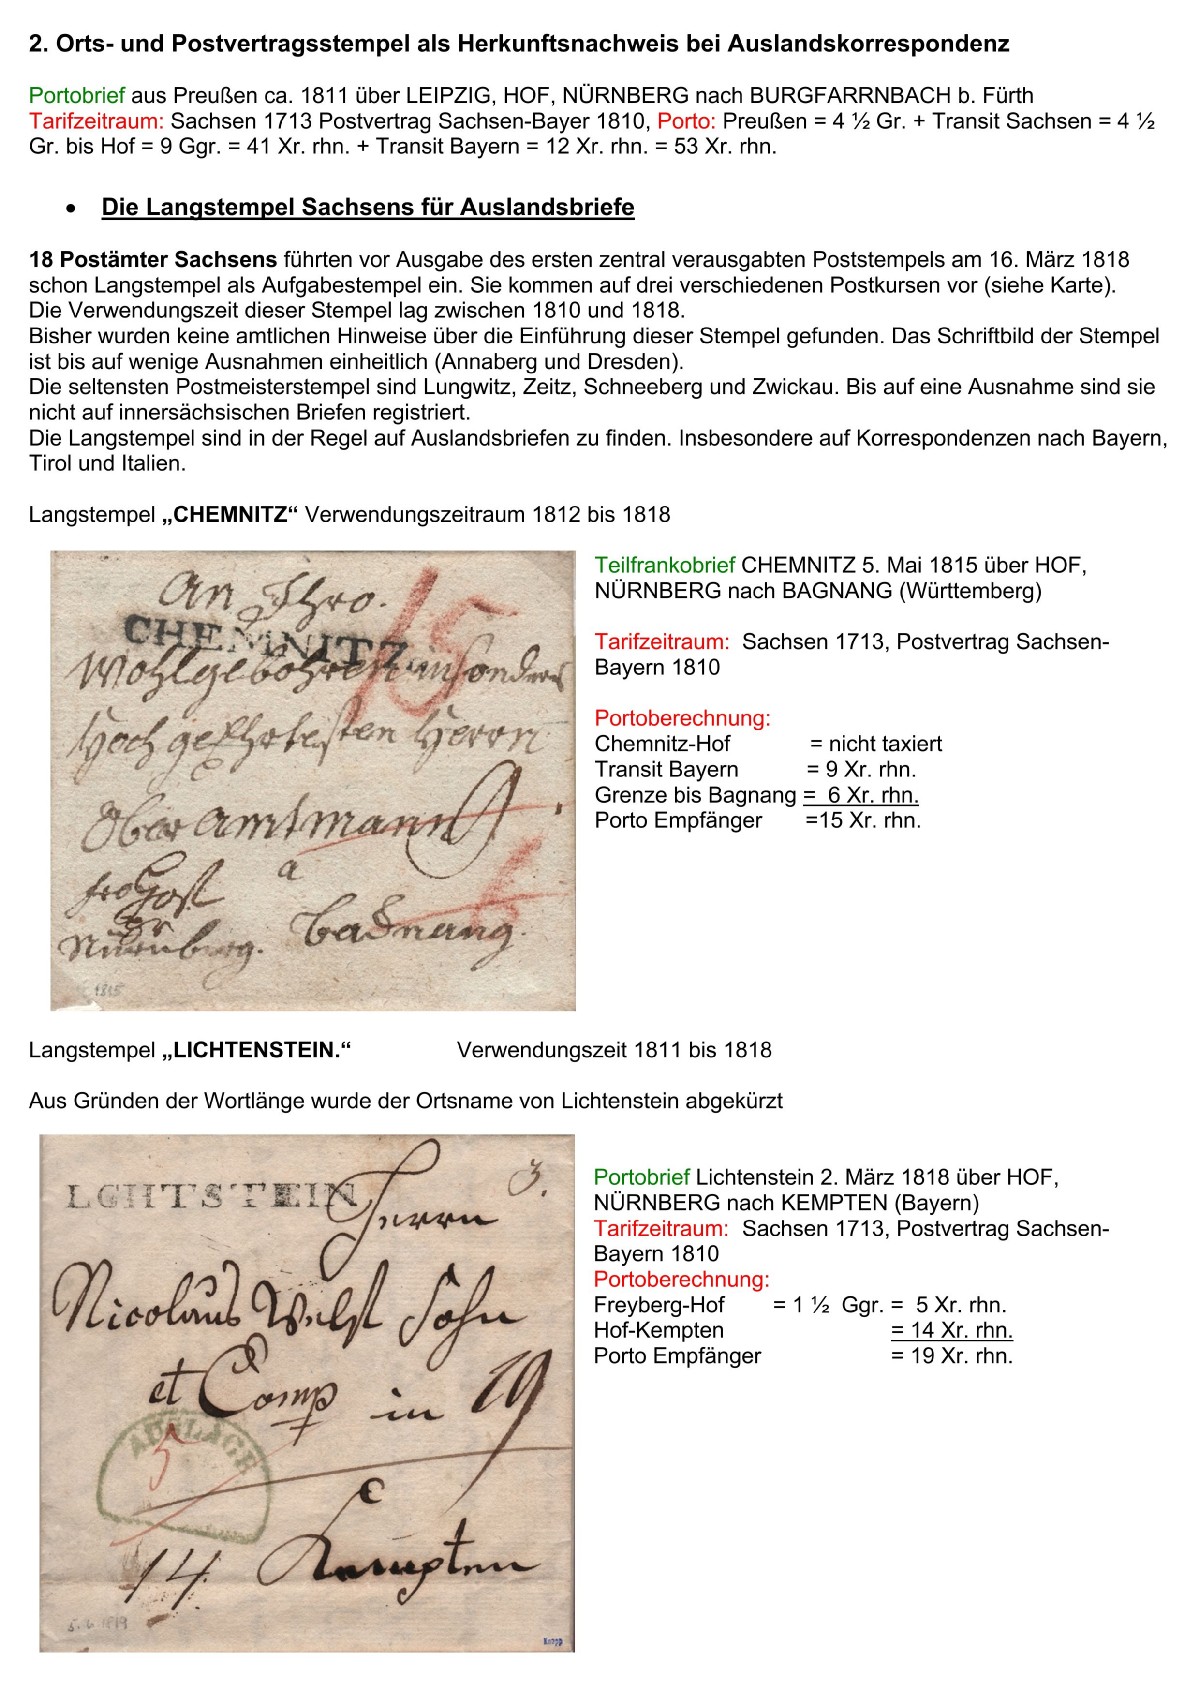 2. Orts- und Postvertragsstempel als Herkunftsnachweis bei Auslandskorrespondenz
Portobrief aus Preußen ca. 1811 über LEIPZIG, HOF, NÜRNBERG nach BURGFARRNBACH b. Fürth
Tarifzeitraum: Sachsen 1713 Postvertrag Sachsen-Bayer 1810, Porto: Preußen = 4 ½ Gr. + Transit Sachsen = 4 ½
Gr. bis Hof = 9 Ggr. = 41 Xr. rhn. + Transit Bayern = 12 Xr. rhn. = 53 Xr. rhn.
• Die Langstempel Sachsens für Auslandsbriefe
18 Postämter Sachsens führten vor Ausgabe des ersten zentral verausgabten Poststempels am 16. März 1818
schon Langstempel als Aufgabestempel ein. Sie kommen auf drei verschiedenen Postkursen vor (siehe Karte).
Die Verwendungszeit dieser Stempel lag zwischen 1810 und 1818.
Bisher wurden keine amtlichen Hinweise über die Einführung dieser Stempel gefunden. Das Schriftbild der Stempel
ist bis auf wenige Ausnahmen einheitlich (Annaberg und Dresden).
Die seltensten Postmeisterstempel sind Lungwitz, Zeitz, Schneeberg und Zwickau. Bis auf eine Ausnahme sind sie
nicht auf innersächsischen Briefen registriert.
Die Langstempel sind in der Regel auf Auslandsbriefen zu finden. Insbesondere auf Korrespondenzen nach Bayern,
Tirol und Italien.
Langstempel „CHEMNITZ“ Verwendungszeitraum 1812 bis 1818
An Ihro.
CHEMNITZ
15
Wohlgebohren insonders
Hoch geEhrtesten Herrn
Ober amtmann
a
6
Nürnberg.
Backnang.
1815
Teilfrankobrief CHEMNITZ 5. Mai 1815 über HOF,
NÜRNBERG nach BAGNANG (Württemberg)
Tarifzeitraum: Sachsen 1713, Postvertrag Sachsen-
Bayern 1810
Portoberechnung:
Chemnitz-Hof = nicht taxiert
Transit Bayern = 9 Xr. rhn.
Grenze bis Bagnang = 6 Xr. rhn.
Porto Empfänger =15 Xr. rhn.
Langstempel „LICHTENSTEIN.“ Verwendungszeit 1811 bis 1818
Aus Gründen der Wortlänge wurde der Ortsname von Lichtenstein abgekürzt
3.
LCHTSTEIN
Herrn
Nicolaus Sohn
et Comp in 19
AUSLAGE
5
14 Kempten
5. 6. 1819
Knopp
Portobrief Lichtenstein 2. März 1818 über HOF,
NÜRNBERG nach KEMPTEN (Bayern)
Tarifzeitraum: Sachsen 1713, Postvertrag Sachsen-
Bayern 1810
Portoberechnung:
Freyberg-Hof = 1 ½ Ggr. = 5 Xr. rhn.
Hof-Kempten = 14 Xr. rhn.
Porto Empfänger = 19 Xr. rhn.